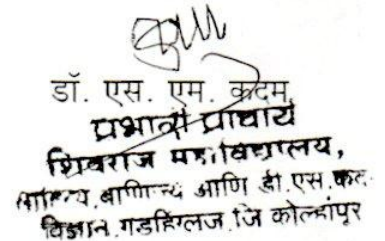 डॉ. एस. एम. कदम
प्रभारी प्राचार्य
शिवराज महाविद्यालय,
वाणिज्य आणि डी.एस.कदम
विज्ञान. गडहिंग्लज. जि कोल्हापूर